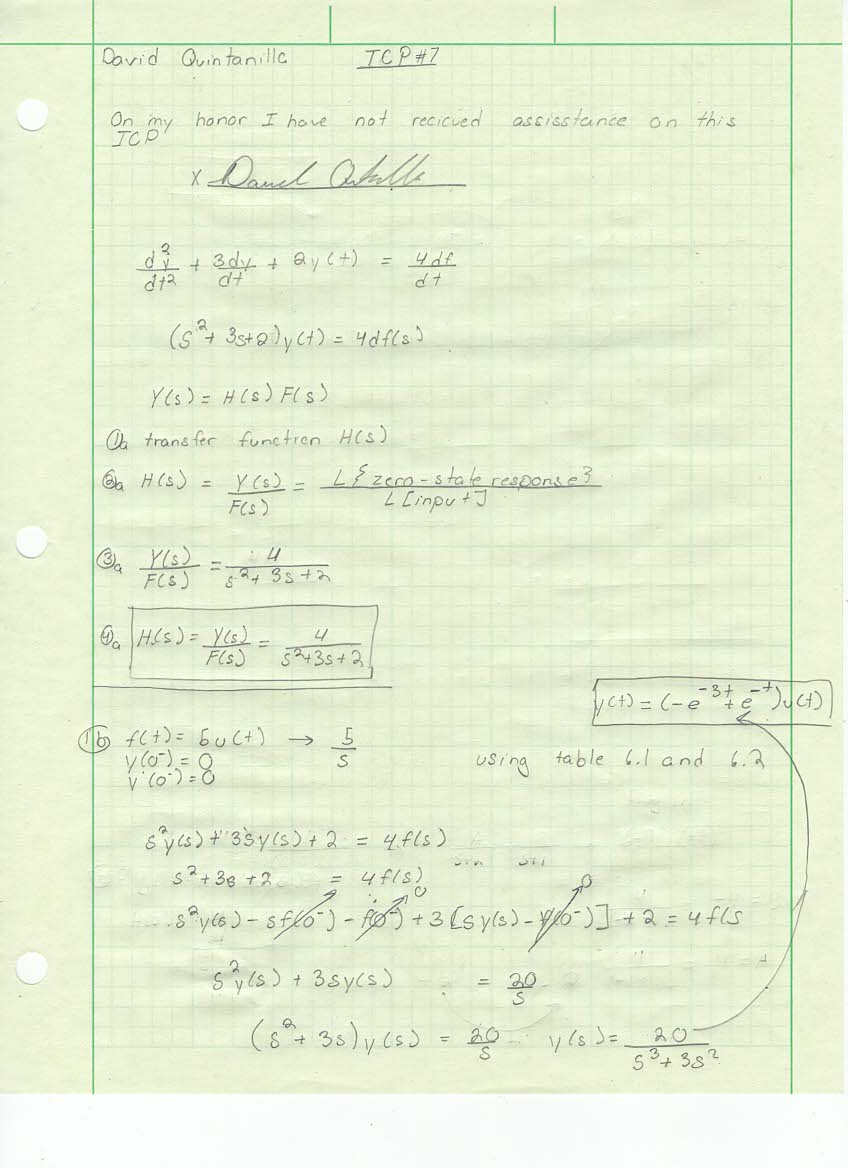 David Quintanilla TCP#7
On my honor I have not recieved assisstance on this
TCP
x
d²y/dt² + 3dy/dt + 2y(t) = 4df/dt
(s² + 3s+2)y(t) = 4df(s)
Y(s) = H(s) F(s)
①a transfer function H(s)
②a H(s) = Y(s)/F(s) = L{zero-state response}/L[input]
③a Y(s)/F(s) = 4/s²+3s+2
④a H(s) = Y(s)/F(s) = 4/s²+3s+2
y(t) = (-e^-3t + e^-t)u(t)
①b f(t) = 5u(t) → 5/s
y(0⁻) = 0
y'(0⁻) = 0
using table 6.1 and 6.2
s²y(s) + 3sy(s) + 2 = 4f(s)
s² + 3s + 2 = 4f(s)
s²y(s) - sf(0⁻) - f(0⁻) + 3[sy(s) - y(0⁻)] + 2 = 4f(s
0 0
s²y(s) + 3sy(s) = 20/s
(s² + 3s)y(s) = 20/s y(s) = 20/s³+3s²